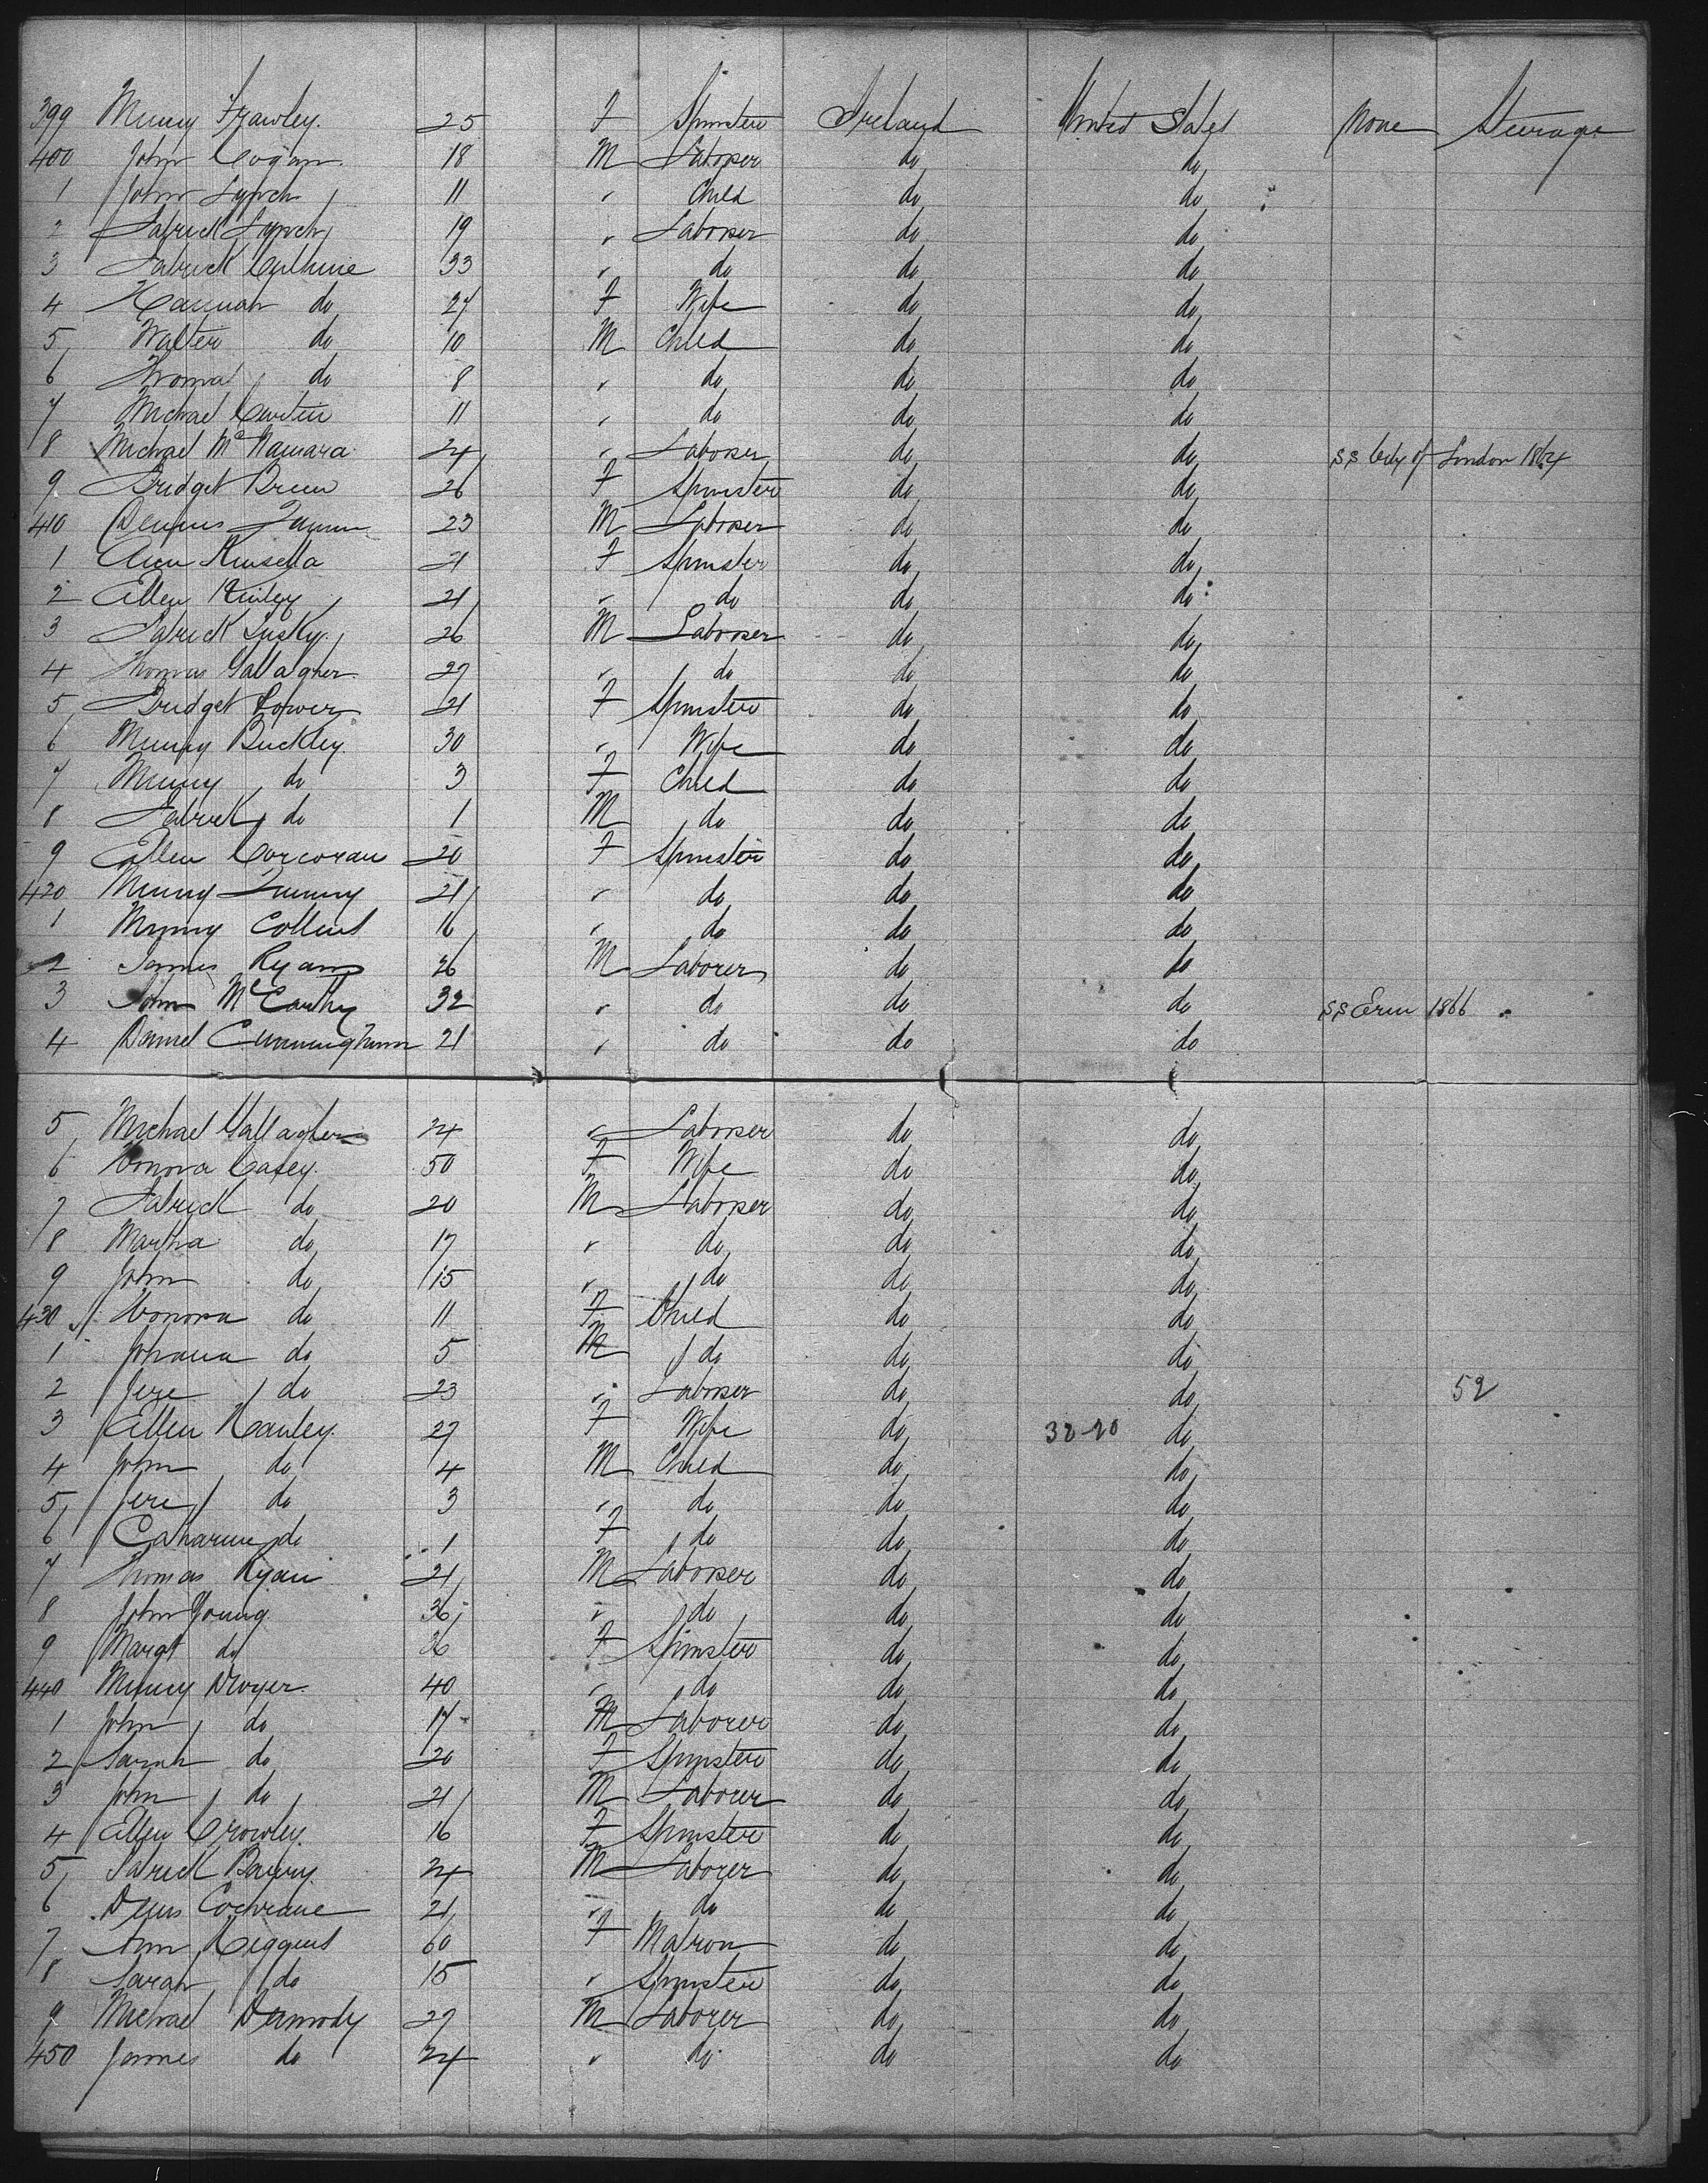 399 Mury Frawley. 25 F Spinster Ireland United States None Steerage
400 John Cogan. 18 M Laborer do do
1 John Lynch 11 " Child do do
2 Patrick Lynch 19 " Laborer do do
3 Patrick Guthrie 33 " do do do
4 Hannah do 27 F Wife do do
5 Walter do 10 M Child do do
6 Thomas do 8 " do do do
7 Michael Curtin 11 " do do do
8 Michael McNamara 24 " Laborer do do SS City of London 1864
9 Bridget Breen 26 F Spinster do do
410 Dennis 23 M Laborer do do
1 Ann Kinsella 21 F Spinster do do
2 Ellen 21 " do do do
3 Patrick Lusky. 26 M Laborer do do
4 Thomas Gallagher. 27 " do do do
5 Bridget Power 21 F Spinster do do
6 Mury Buckley. 30 " Wife do do
7 Mury do 3 F Child do do
8 Patrick do 1 M do do do
9 Ellen Corcoran 20 F Spinster do do
420 Mury 21 " do do do
1 Mury Collins 16 " do do do
2 James Ryan 26 M Laborer do do
3 John McCarthy 32 " do do do SS Erin 1866
4 Daniel Cunningham 21 " do do do
5 Michael Gallagher 24 " Laborer do do
6 Honora Casey. 50 F Wife do do
7 Patrick do 20 M Laborer do do
8 Martha do 17 " do do do
9 John do 15 " do do do
430 Honora do 11 F Child do do
1 Johana do 5 M do do do
2 Jere do 23 " Laborer do do 52
3 Ellen Hanley. 27 F Wife do 32-20 do
4 John do 4 M Child do do
5 Jere do 3 " do do do
6 Catharine do 1 F do do do
7 Thomas Ryan 21 M Laborer do do
8 John Young. 36 " do do do
9 Margt do 36 F Spinster do do
440 Mury Dwyer. 40 " do do do
1 John do 17 M Laborer do do
2 Sarah do 20 F Spinster do do
3 John do 21 M Laborer do do
4 Ellen Crowley. 16 F Spinster do do
5 Patrick Barry. 24 M Laborer do do
6 Denis Cochrane 21 " do do do
7 Ann Higgins 60 F Matron do do
8 Sarah do 15 " Spinster do do
9 Michael Dermody 27 M Laborer do do
450 James do 24 " do do do